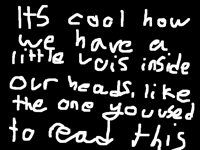 ItS cool how
we have a
little vois inside
our heads, like
the one you used
to read this